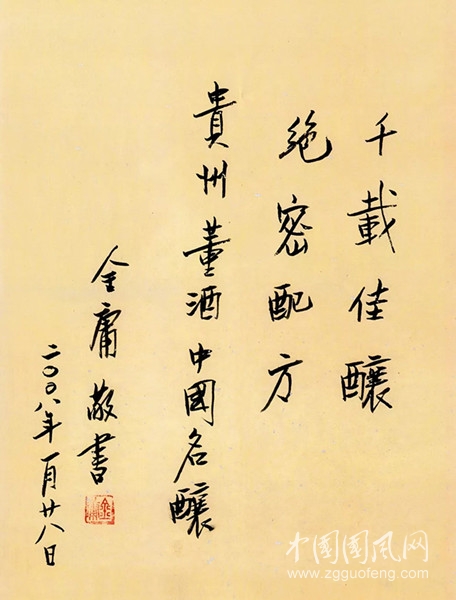 千載佳釀
絶密配方
貴州董酒中國名釀
金庸敬書
二〇〇八年一月廿八日
中国国风网
www.zgguofeng.com